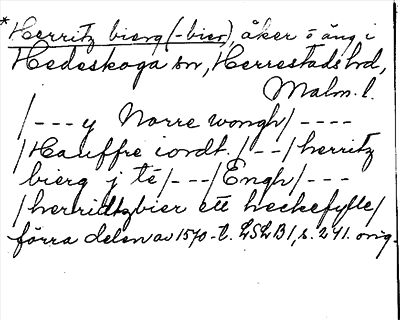 *Herritz bierg (-bier), åker o äng i
Hedeskoga sn, Herrestads hd,
Malm. l.
/--- y Norre wongh/ ----
/Hauffre iordt./--/herritz
bierg j té/---/Engh/---
/herridtzbier ett heckefylle/
förra delen av 1570-t. LSLB 1, s. 241. orig.